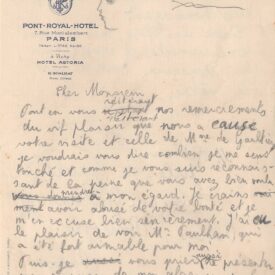 PONT-ROYAL-HOTEL
7, Rue Montalembert
PARIS
à Vichy
HOTEL ASTORIA
Cher Monsieur
réitérant
Tout en vous nos remerciements
du vif plaisir que nous a causé
votre visite et celle de Mme de Gaultier
je voudrais vous dire combien je me sens
touché et comme je vous suis reconnais-
sant de la peine que vous avez bien voulu
prendre à mon égard. Je crains
avoir abusé de votre bonté et je
m'en excuse bien sincèrement. J'ai eu
le plaisir de voir Mr Paulhan, qui
a été fort aimable pour moi.
aussi
Puis-je vous prier de présenter